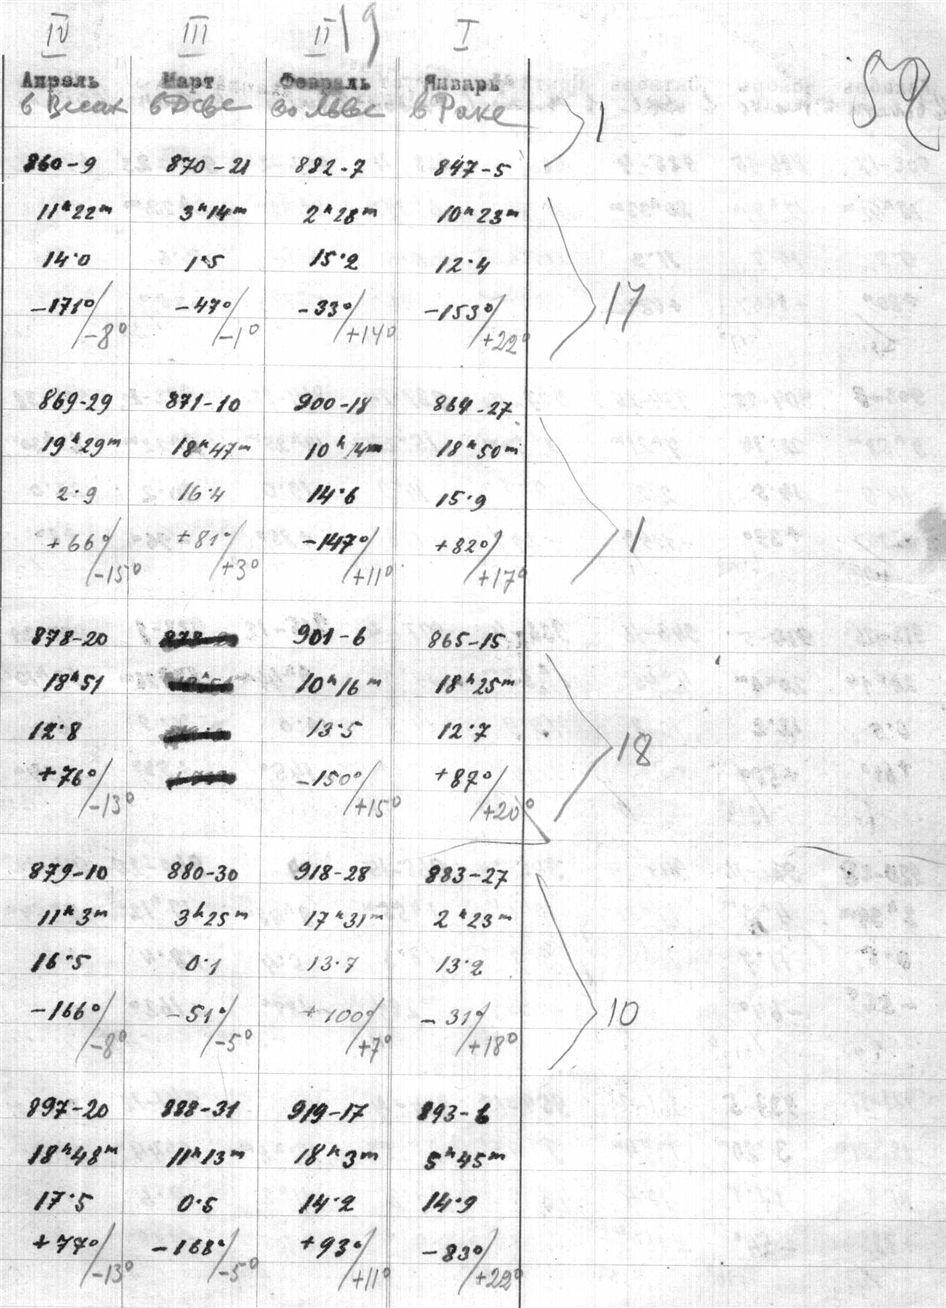 IV III II 19 I
Апрель Март Февраль Январь
в Весах в Деве во Льве в Раке 1
860-9 870-21 882-7 847-5
11ʰ22ᵐ 3ʰ14ᵐ 2ʰ28ᵐ 10ʰ23ᵐ
14·0 1·5 15·2 12·4
-171°/-8° -47°/-1° -33°/+14° -153°/+22° 17
869-29 871-10 900-18 864-27
19ʰ29ᵐ 18ʰ47ᵐ 10ʰ14ᵐ 18ʰ50ᵐ
2·9 16·4 14·6 15·9
+66°/-15° +81°/+3° -147°/+11° +82°/+17° 1
878-20 901-6 865-15
18ʰ51 10ʰ16ᵐ 18ʰ25ᵐ
12·8 13·5 12·7
+76°/-13° -150°/+15° +87°/+20° 18
879-10 880-30 918-28 883-27
11ʰ3ᵐ 3ʰ25ᵐ 17ʰ31ᵐ 2ʰ23ᵐ
16·5 0·1 13·7 13·2
-166°/-8° -51°/-5° +100°/+7° -31°/+18° 10
897-20 888-31 919-17 893-6
18ʰ48ᵐ 11ʰ13ᵐ 18ʰ3ᵐ 5ʰ45ᵐ
17·5 0·5 14·2 14·9
+77°/-13° -168°/-5° +93°/+11° -83°/+22°